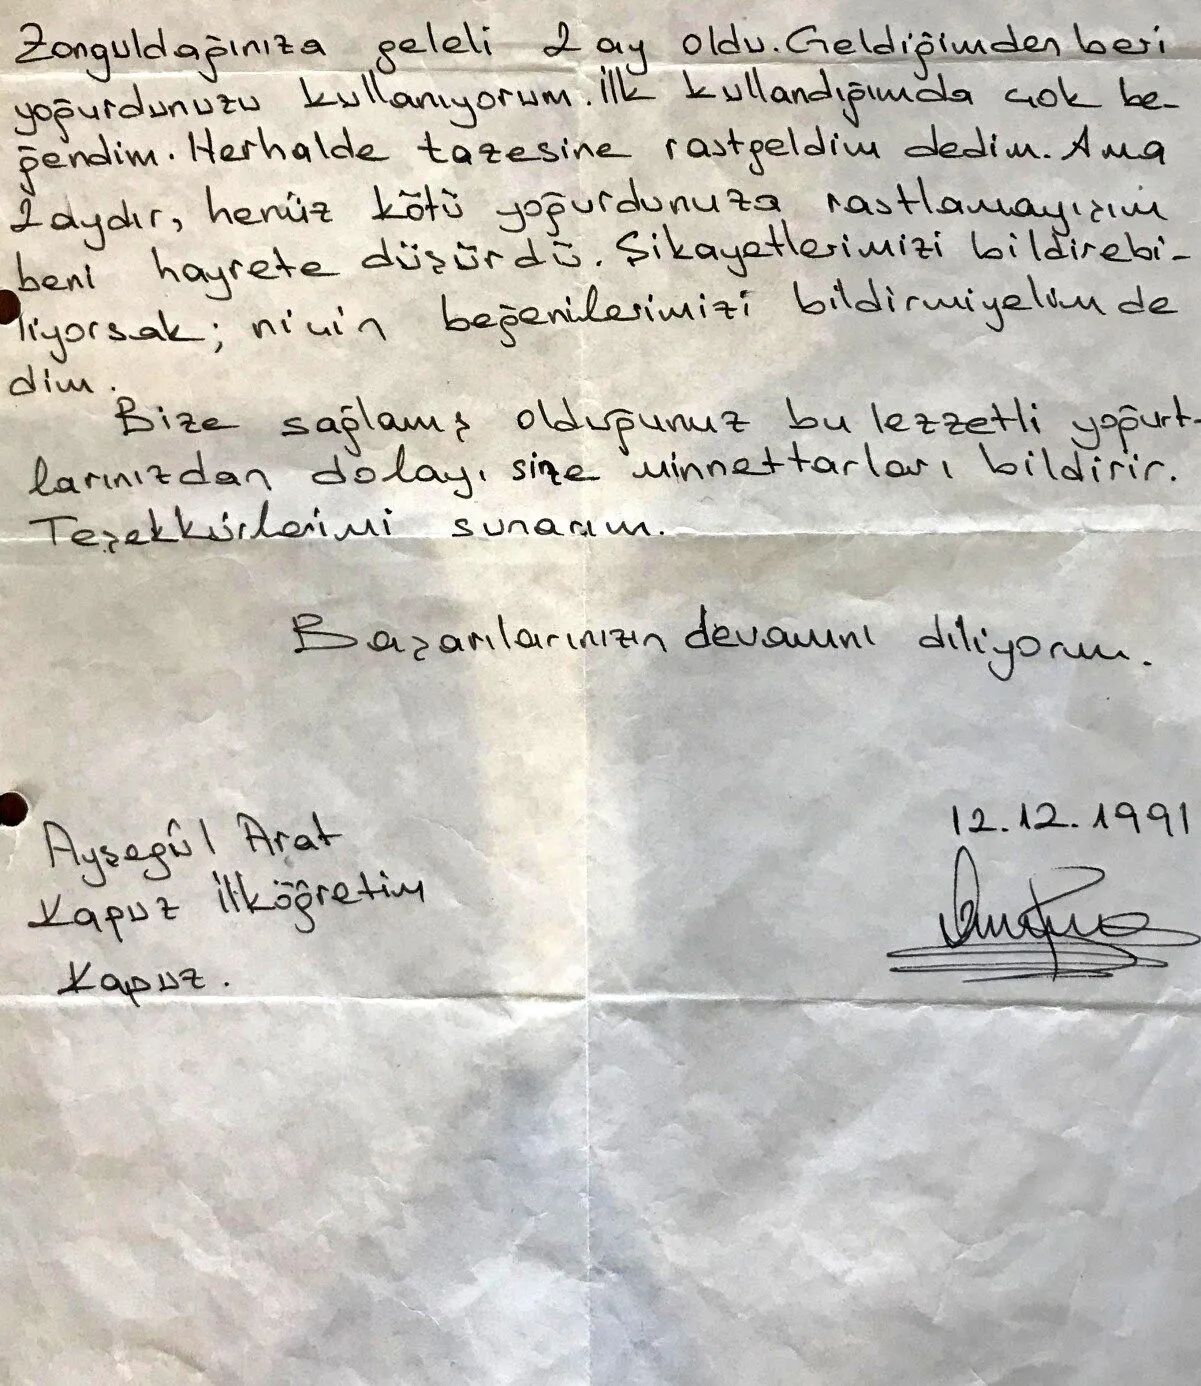 Zonguldağınıza geleli 2 ay oldu. Geldiğimden beri
yoğurdunuzu kullanıyorum. İlk kullandığımda çok be-
ğendim. Herhalde tazesine rastgeldim dedim. Ama
2 aydır, henüz kötü yoğurdunuza rastlamayışım
beni hayrete düşürdü. Şikayetlerimizi bildirebi-
liyorsak; niçin beğenilerimizi bildirmiyelim de
dim.
Bize sağlamış olduğunuz bu lezzetli yoğurt-
larınızdan dolayı size minnettarları bildirir.
Teşekkürlerimi sunarım.
Başarılarınızın devamını diliyorum.
12.12.1991
Ayşegül Arat
Kapuz İlköğretim
Kapuz.